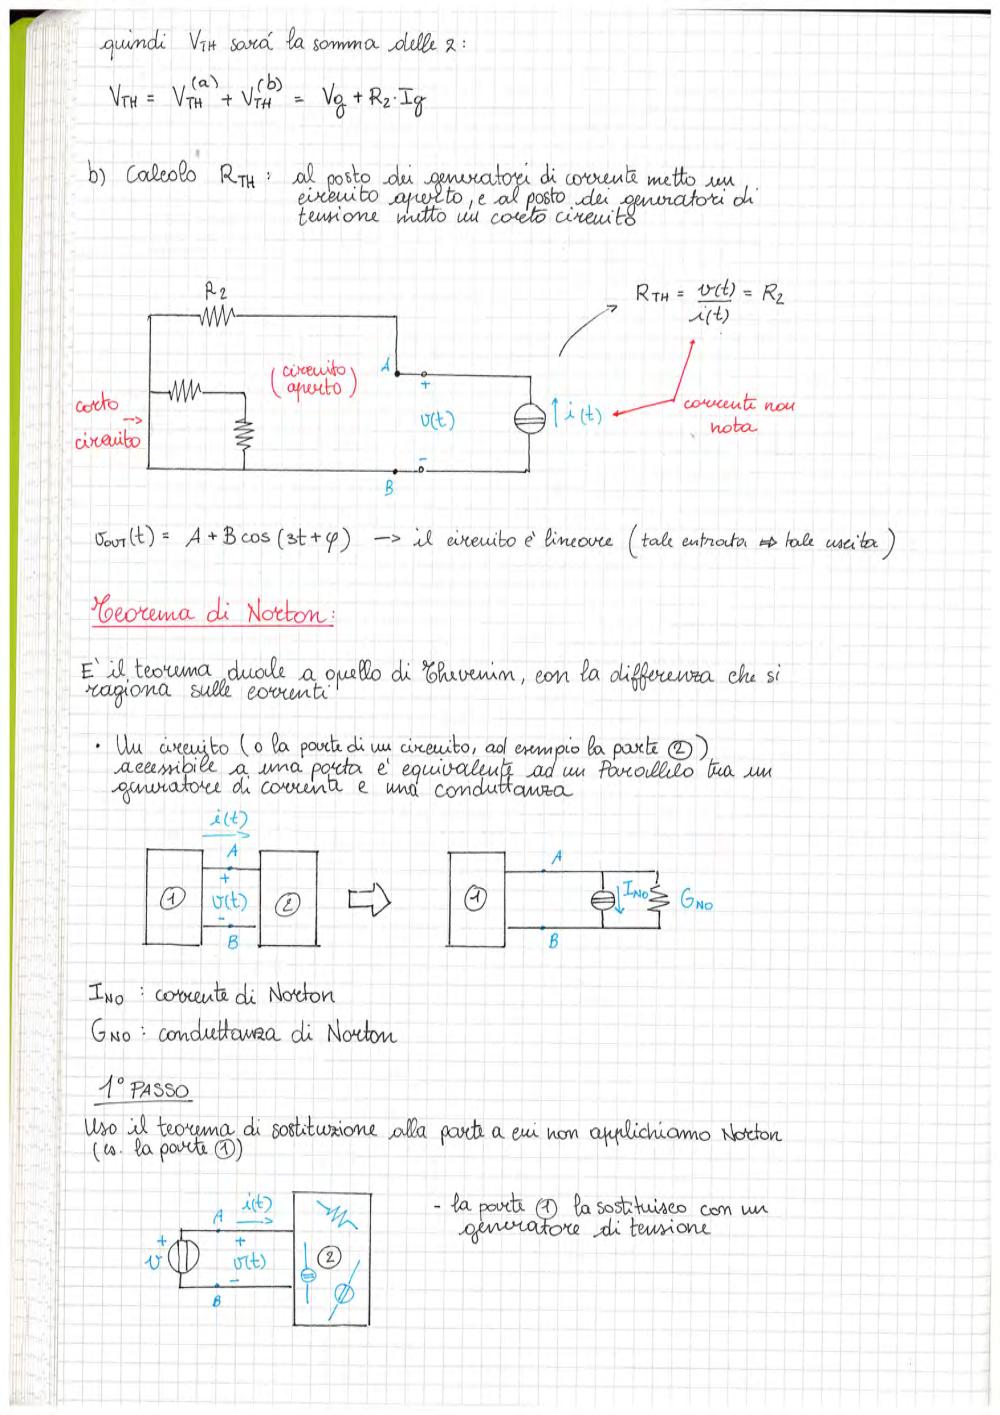 quindi VTH sará la somma delle 2:
VTH = VTH(a) + VTH(b) = Vg + R2·Ig
b) Calcolo RTH: al posto dei generatori di corrente metto un
circuito aperto, e al posto dei generatori di
tensione metto un corto circuito
R2
RTH = v(t)/i(t) = R2
(circuito aperto)
A
+
corto
->
circuito
v(t)
i(t)
corrente non
nota
-
B
vOUT(t) = A + B cos (3t + φ) -> il circuito é lineare (tale entrata ⇔ tale uscita)
Teorema di Norton:
E' il teorema duale a quello di Thevenin, con la differenza che si
ragiona sulle correnti
• Un circuito (o la parte di un circuito, ad esempio la parte ②)
accessibile a una porta e' equivalente ad un Parallelo tra un
generatore di corrente e una conduttanza
i(t)
A
+
① v(t) ②
-
B
A
① INO GNO
B
INO : corrente di Norton
GNO : conduttanza di Norton
1° PASSO
Uso il teorema di sostituzione alla parte a cui non applichiamo Norton
(es. la parte ①)
A i(t)
+ +
v v(t) ②
-
B
- la parte ① la sostituisco con un
generatore di tensione